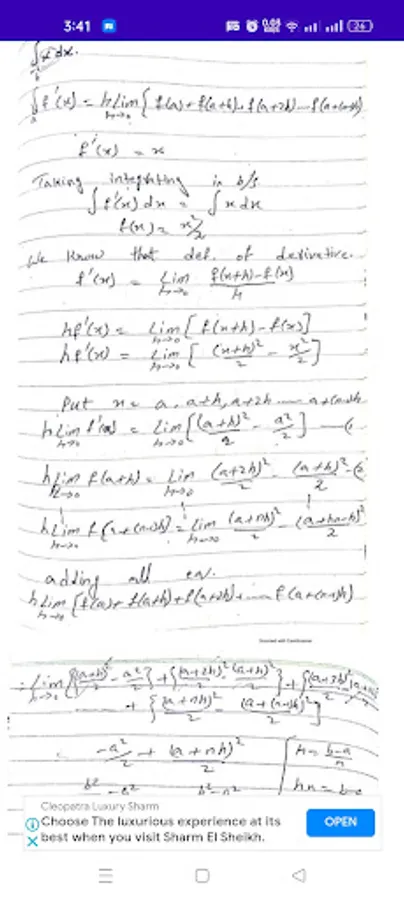 3:41
26
∫x dx.
b
∫ f'(x) = h lim { f(a) + f(a+h) + f(a+2h) --- f(a+(n-1)h)
a h→0
f'(x) = x
Taking integrating in b/s
∫ f'(x) dx = ∫ x dx
f(x) = x²/2
We know that def. of derivative.
f'(x) = Lim h→0 f(x+h) - f(x) / h
hf'(x) = Lim h→0 [ f(x+h) - f(x) ]
hf'(x) = Lim h→0 [ (x+h)²/2 - x²/2 ]
Put x = a, a+h, a+2h ---- a+(n-1)h
h Lim h→0 f'(a) = Lim h→0 [ (a+h)²/2 - a²/2 ] —(
h Lim h→0 f(a+h) = Lim h→0 (a+2h)²/2 - (a+h)²/2 -(2
h Lim h→0 f(a+(n-1)h) = Lim h→0 (a+nh)²/2 - (a+hn-h)²/2
adding all
h Lim h→0 [ f(a) + f(a+h) + f(a+2h) + ---- f(a+(n-1)h)
Scanned with CamScanner
= Lim h→0 [ {(a+h)²/2 - a²/2} + {(a+2h)²/2 - (a+h)²/2} + {(a+3h)²/2
+ { (a+nh)²/2 - (a+(n-1)h)²/2 } ]
-a²/2 + (a+nh)²/2 h = b-a/n
b² - a² b² - a² hn = b-a
Cleopatra Luxury Sharm
Choose The luxurious experience at its
best when you visit Sharm El Sheikh.
OPEN